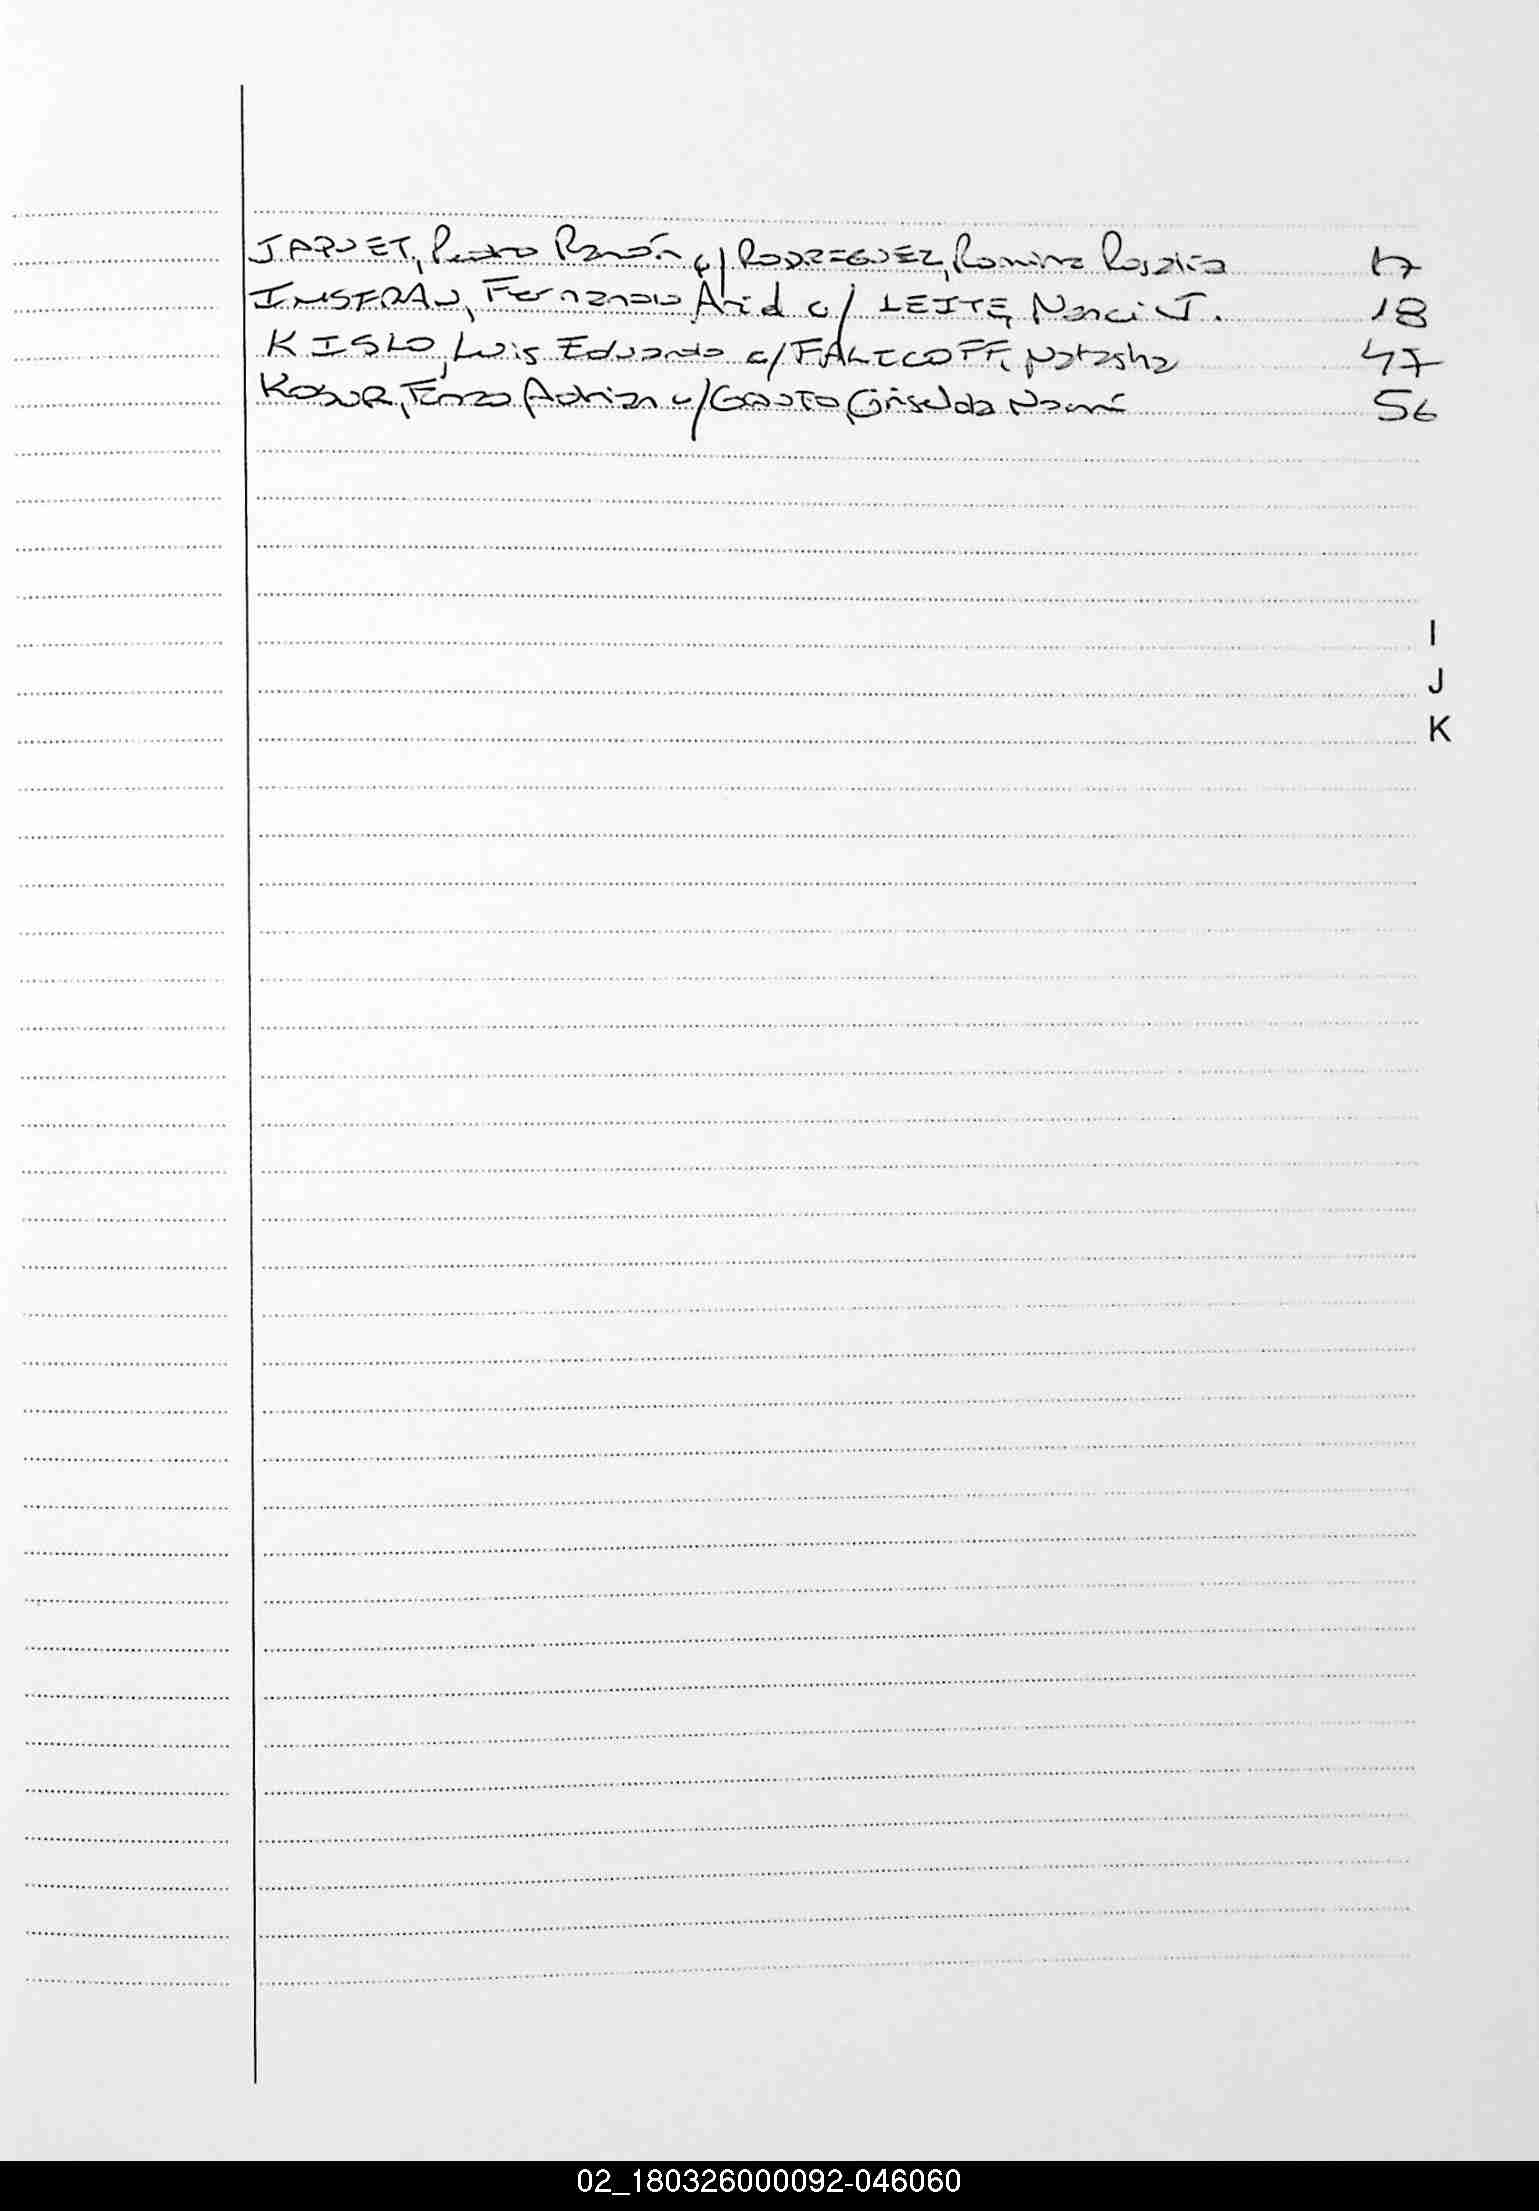 JAQUET, Pedro Ramón c/ RODRIGUEZ, Romina Rosalia 17
INSFRAN, Fernando Arid c/ LEITE, Narci J. 18
KISLO, Luis Eduardo c/ FALICOFF, Natasha 47
KOSUR, Enzo Adrian c/ GAUTO, Griselda Noemí 56
I
J
K
02_180326000092-046060